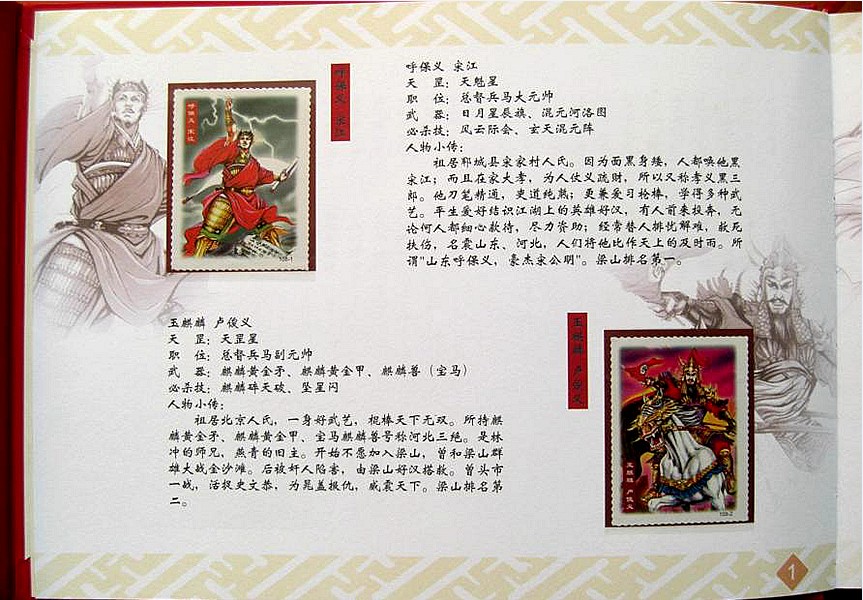 呼保义 宋江
呼保义 宋江
108-1
呼保义 宋江
天 罡：天魁星
职 位：总督兵马大元帅
武 器：日月星辰旗、混元河洛图
必杀技：风云际会、玄天混元阵
人物小传：
祖居郓城县宋家村人氏。因为面黑身矮，人都唤他黑
宋江；而且在家大孝，为人仗义疏财，所以又称孝义黑三
郎。他刀笔精通，吏道纯熟；更兼爱习枪棒，学得多种武
艺。平生爱好结识江湖上的英雄好汉，有人前来投奔，无
论何人都细心款待，尽力资助；经常替人排忧解难，救死
扶伤，名震山东、河北，人们将他比作天上的及时雨。所
谓"山东呼保义，豪杰宋公明"。梁山排名第一。
玉麒麟 卢俊义
天 罡：天罡星
职 位：总督兵马副元帅
武 器：麒麟黄金矛、麒麟黄金甲、麒麟兽（宝马）
必杀技：麒麟碎天破、坠星闪
人物小传：
祖居北京人氏，一身好武艺，棍棒天下无双。所持麒
麟黄金矛、麒麟黄金甲、宝马麒麟兽号称河北三绝。是林
冲的师兄，燕青的旧主。开始不愿加入梁山，曾和梁山群
雄大战金沙滩。后被奸人陷害，由梁山好汉搭救。曾头市
一战，活捉史文恭，为晁盖报仇，威震天下。梁山排名第
二。
玉麒麟 卢俊义
玉麒麟 卢俊义
108-2
1